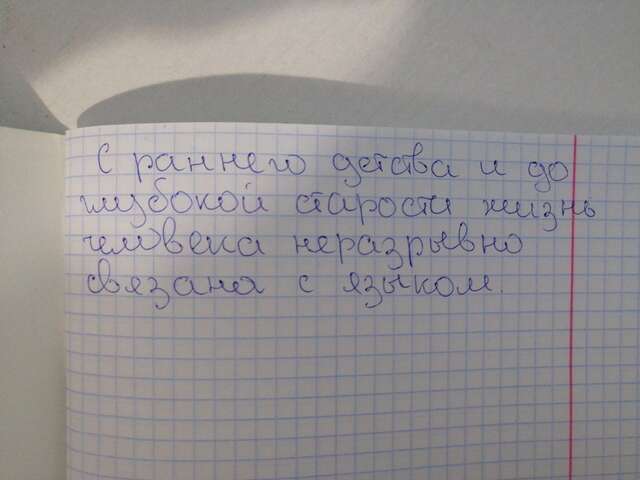 С раннего детства и до
глубокой старости жизнь
человека неразрывно
связана с языком.